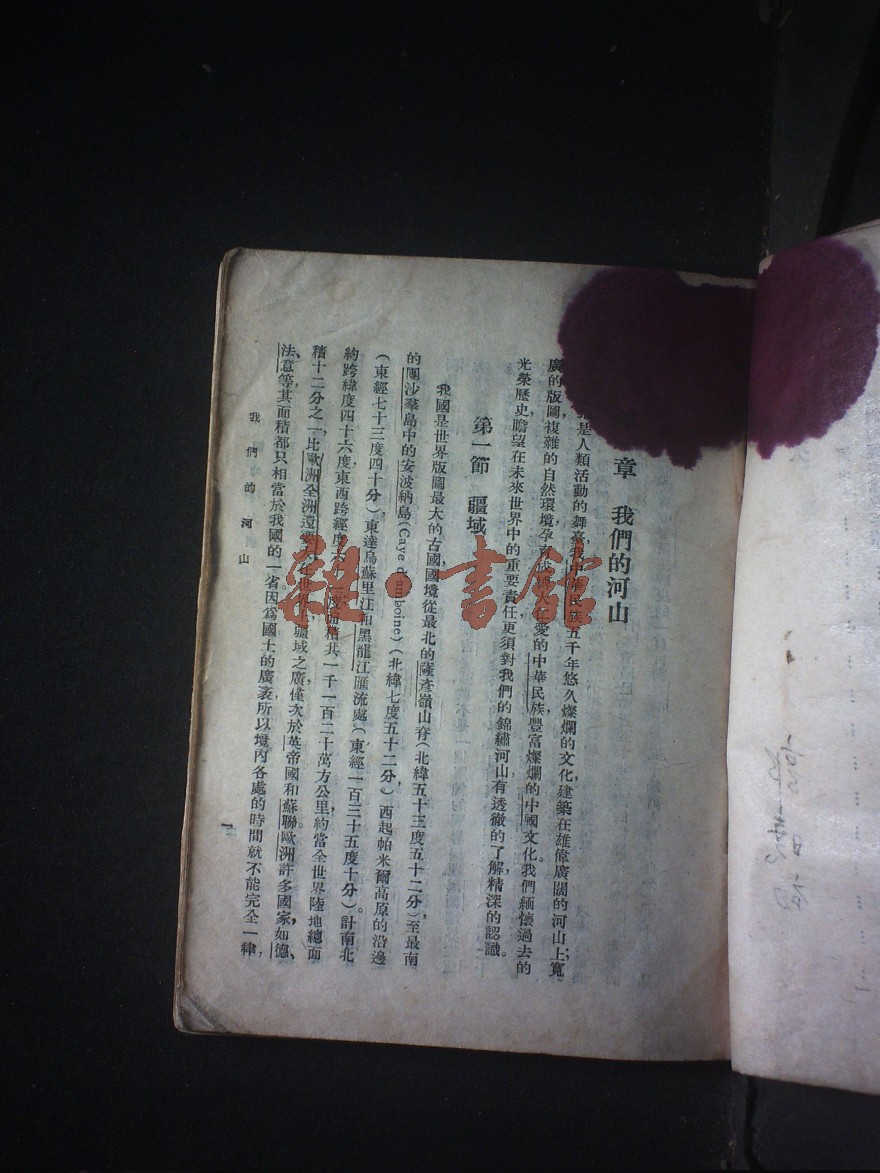 章　我們的河山
是人類活動的舞臺我中華民族五千年悠久燦爛的文化建築在雄偉廣闊的河山上；寬
廣的版圖複雜的自然環境孕育仁愛的中華民族豐富燦爛的中國文化。我們緬懷過去的
光榮歷史瞻望在未來世界中的重要責任更須對我們的錦繡河山有透徹的了解，精深的認識。
第一節　疆域
我國是世界版圖最大的古國國境從最北的薩彥嶺山脊（北緯五十三度五十二分），至最南
的團沙羣島中的安波納島(Caye d'amboine)（北緯七度五十二分），西起帕米爾高原的沿邊
（東經七十三度四十分），東達烏蘇里江和黑龍江匯流處（東經一百三十五度十分）。計南北
約跨緯度四十六度，東西跨經度六十二度面積共一千一百二十萬方公里，約當全世界陸地總面
積十二分之一，比歐洲全洲還要世界上疆域之廣，僅次於英帝國和蘇聯歐洲許多國家，如德、
法、意等，其面積都只相當於我國的一省。因爲國土的廣袤所以境內各處的時間就不能完全一律，
我們的河山
一
雜·書館